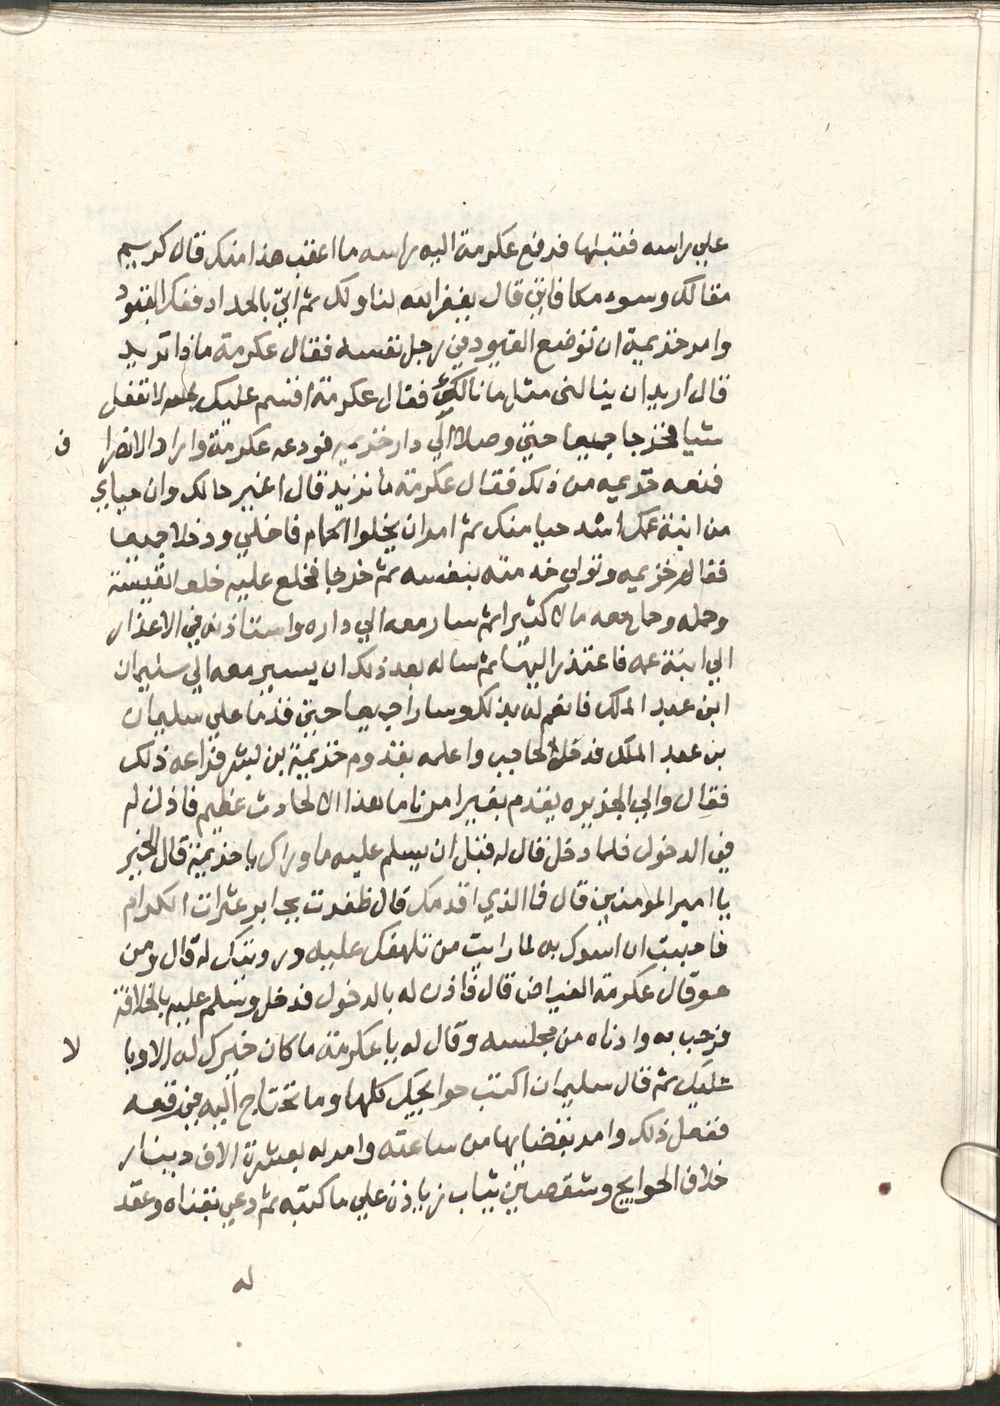 علي راسه فقبلها فرفع عكرمة اليه راسه ما اعقب هذا منك قال كريم
فعالك وسوء مكافاتي قال يغفر الله لنا ولك ثم اتي بالحداد ففك القيود
وامر خزيمة ان توضع القيود في رجل نفسه فقال عكرمة ماذا تريد
قال اريد ان ينالني مثل ما نالك فقال عكرمة اقسم عليك بالله لا تفعل
شيا فخرجا جميعا حتي وصلا الي دار خزيمه فودعه عكرمة واراد الانصرا
ف
فمنعه خزيمه من ذلك فقال عكرمة ما تريد قال اغير حالك وان حياي
من ابنة عمك اشد حيا منك ثم امر ان يخلوا الحمام فاخلي ودخلا جميعا
فقام خزيمه وتولي خدمته بنفسه ثم خرجا فخلع عليه خلعا نفيسة
وحمله وحمل معه مالا كثيرا ثم سار معه الي داره واستاذنه في الاعذار
الي ابنة عمه فاعتذر اليها ثم ساله بعد ذلك ان يسير معه الي سليمان
ابن عبد الملك فانعم له بذلك وسارا جميعا حتي قدما علي سليمان
بن عبد الملك فدخل الحاجب واعلمه بقدوم خزيمة بن بشر فراعه ذلك
فقال والي الجزيره يقدم بغير امرنا ما هذا الا لحادث عظيم فاذن له
في الدخول فلما دخل قال له قبل ان يسلم عليه ما وراك يا خزيمة قال الخير
يا امير المومنين قال فما الذي اقدمك قال ظفرت بجابر عثرات الكرام
فاحببت ان اسرك به لما رايت من تلهفك عليه ورويتك له قال ومن
هو قال عكرمة الفياض قال فاذن له بالدخول فدخل وسلم عليه بالخلافة
فرحب به وادناه من مجلسه وقال له يا عكرمة ما كان خيرك له الا وبا
لا
عليك ثم قال سليمان اكتب حوايجك كلها وما تحتاج اليه في رقعه
ففعل ذلك وامر بقضايها من ساعته وامر له بعشرة الاف دينار
خلاف الحوايج وسفطين ثياب زيادة علي ما كتبه ثم دعي بقناه وعقد
له